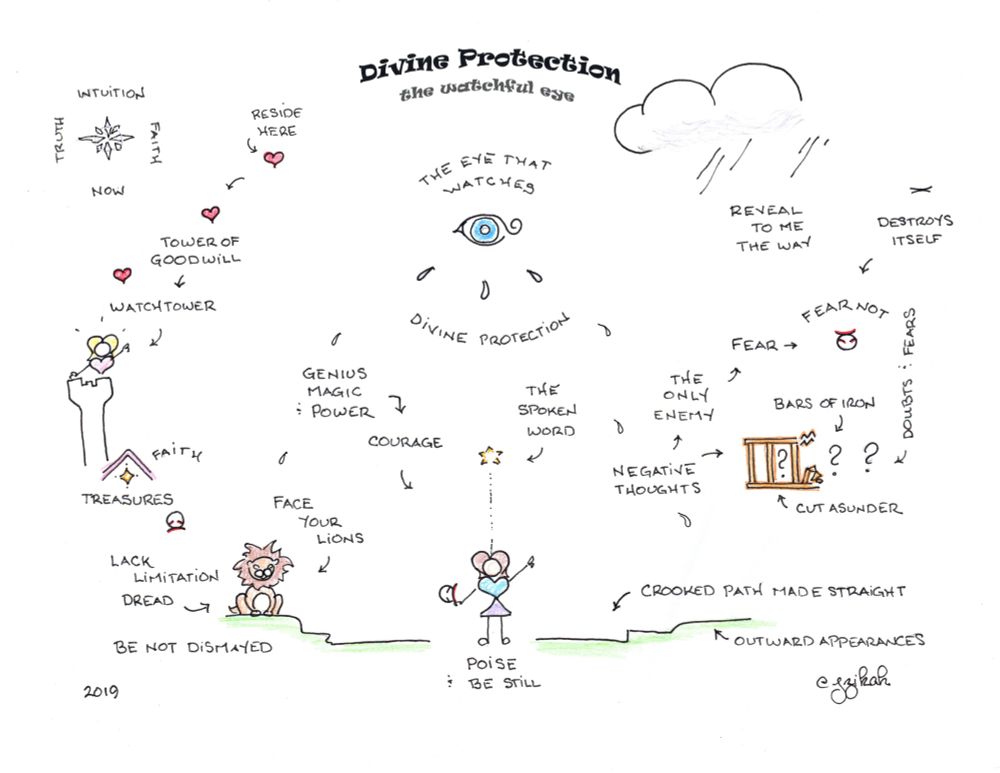 Divine Protection
the watchful eye
INTUITION
TRUTH
FAITH
NOW
RESIDE
HERE
THE EYE THAT
WATCHES
REVEAL
TO ME
THE WAY
DESTROYS
ITSELF
TOWER OF
GOODWILL
WATCHTOWER
DIVINE PROTECTION
FEAR NOT
FEAR
DOUBTS & FEARS
GENIUS
MAGIC
& POWER
THE
SPOKEN
WORD
THE
ONLY
ENEMY
BARS OF IRON
? ? ?
COURAGE
FAITH
NEGATIVE
THOUGHTS
TREASURES
FACE
YOUR
LIONS
CUT ASUNDER
LACK
LIMITATION
DREAD
CROOKED PATH MADE STRAIGHT
BE NOT DISMAYED
OUTWARD APPEARANCES
POISE
& BE STILL
2019